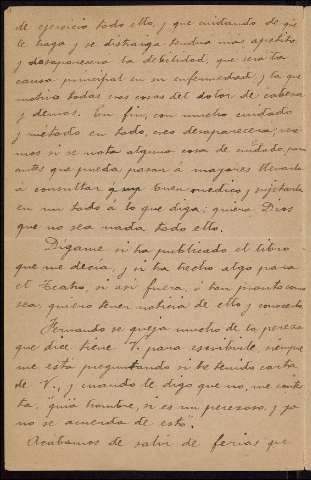 de ejercicio todo ello, y que cuidando de que
lo haga y se distraiga tendrá más apetito
y desaparecerá la debilidad, que será la
causa principal en su enfermedad, y la que
motiva todas esas cosas del dolor de cabeza
y demas. En fin, con mucho cuidado
y método en todo, creo desaparecerá; vea
mos si se nota alguna cosa de cuidado, para
antes que pueda pasar á mayores llevarla
á consultar buen medico, y sujetarla
en un todo á lo que diga; quiera Dios
que no sea nada todo ello.
Dígame si ha publicado el libro
que me decía, y si ha hecho algo para
el Teatro, si así fuera, ó tan pronto como
sea, quiero tener noticia de ello y conocerlo
Fernando se queja mucho de la pereza
que dice tiene V. para escribirle, siempre
me está preguntando si he tenido carta
de V., y cuando le digo que no, me contes
ta, "quiá hombre, si es un perezoso, y ya
no se acuerda de esto".
Acabamos de salir de ferias que